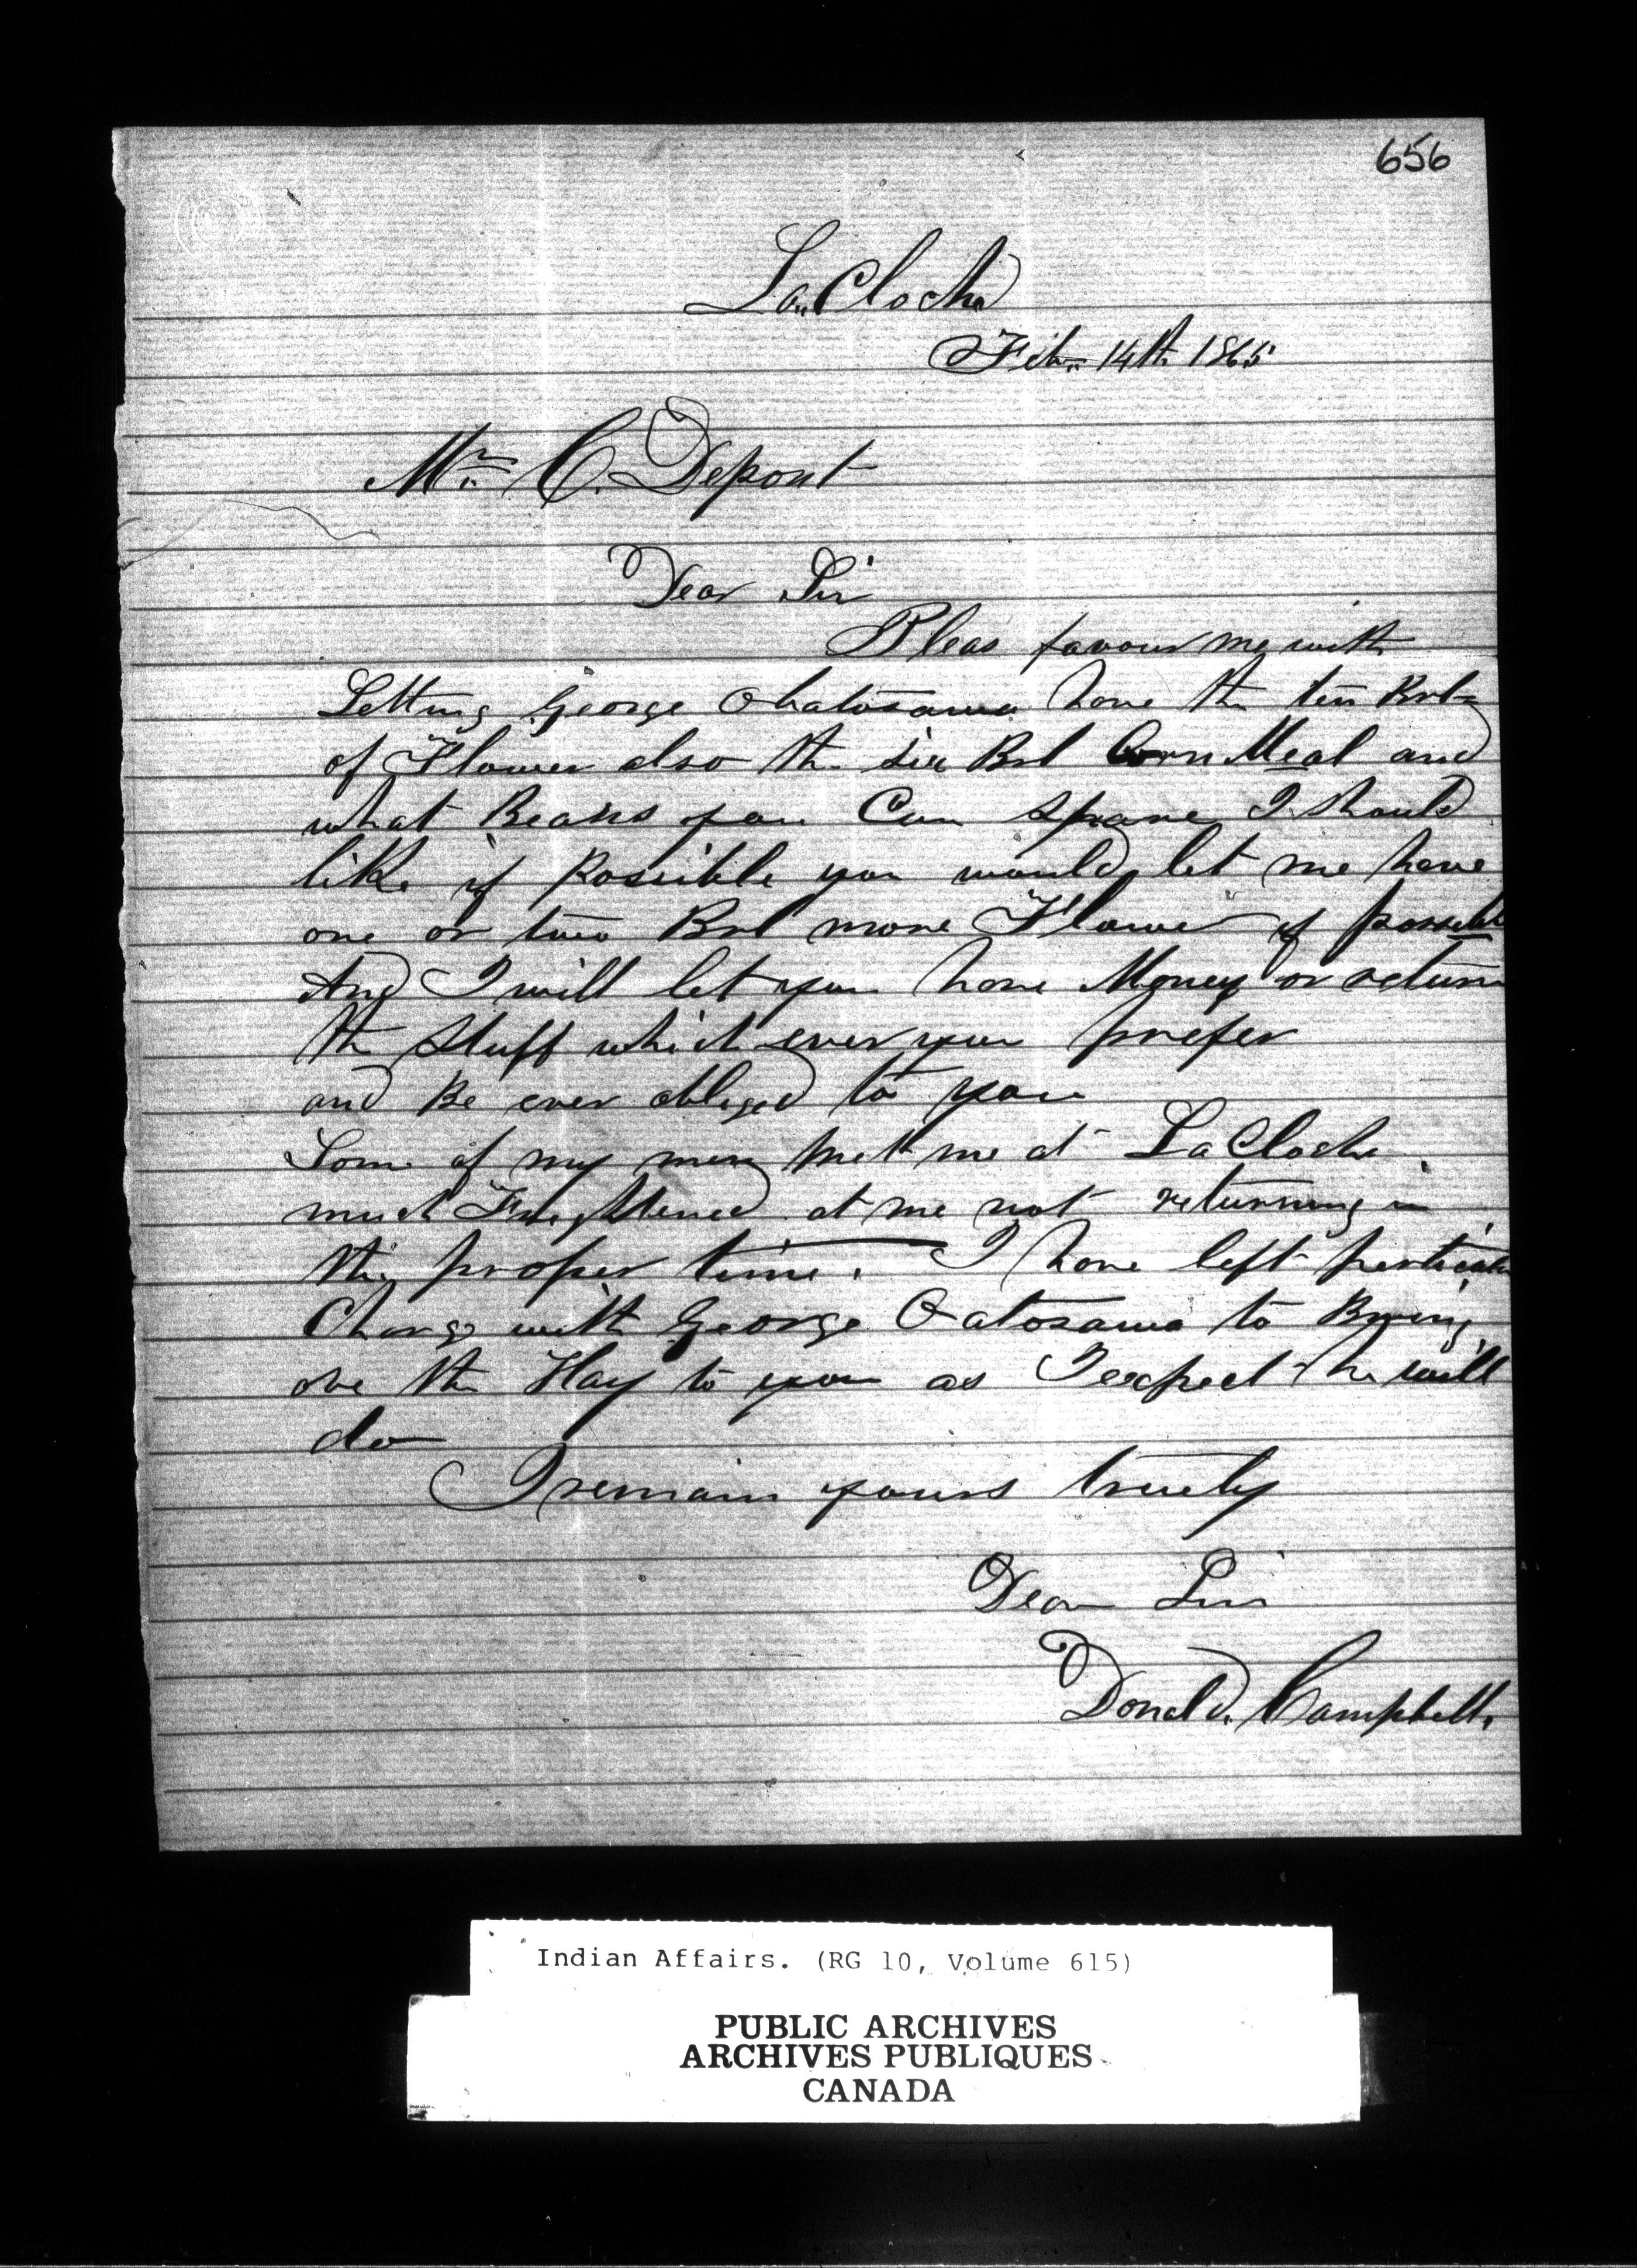 656
La Cloche
Feb. 14th 1865
Mr. C. Depont
Dear Sir
Pleas favour me with
Letting George Obatosawa have the ten Brls
of Flower also the six Brl Corn Meal and
what Beans you Can Spare I should
like if Possible you would let me have
one or two Brl more Flower if possible
And I will let you have Money or return
the Stuff which ever you prefer
and Be ever obliged to you
Some of my men met me at La Cloche
much Freightened at me not returning in
the proper time. I have left perticular
Charge with George Oatosawa to Bring
ove the Hay to you as I expect he will
do
I remain yours truely
Dear Sir
Donald Campbell
Indian Affairs. (RG 10, Volume 615)
PUBLIC ARCHIVES
ARCHIVES PUBLIQUES
CANADA